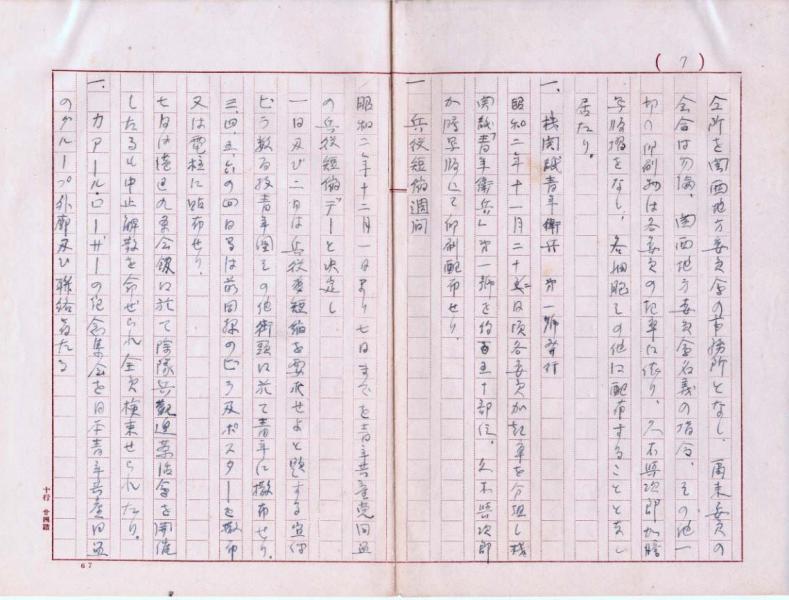 (7)
仝所を関西地方委員会の事務所となし、爾来委員の
会合は勿論、関西地方委員会名義の指令、その他一
切の印刷物は各委員の起草に依り、久木興次郎が謄
写版摺をなし、各細胞その他に配布することとなし
居たり。
一、機関誌青年衛兵 第一号発行
昭和二年十一月二十五日頃各委員が起草を分担し機
関誌「青年衛兵」第一号を約百五十部位、久木興次郎
が謄写版にて印刷配布せり。
一 兵役短縮週間
昭和二年十二月一日より七日までを青年共産党同盟
の兵役短縮デーと決定し
一日及び二日は兵役を短縮を要求せよと題する宣伝
ビラ数百枚青年団その他街頭に於て青年に撒布せり。
三、四、五、六の四日間は前同様のビラ及ポスターを撒布
又は電柱に貼布せり。
七日は港区九条会館に於て除隊兵歓迎茶話会を開催
したるも中止解散を命ぜられ全員検束せられたり。
一、カアール・ローザーの記念集会を日本青年共産同盟
のグループ外郭及び聯絡者たる
十行 廿四詰
67